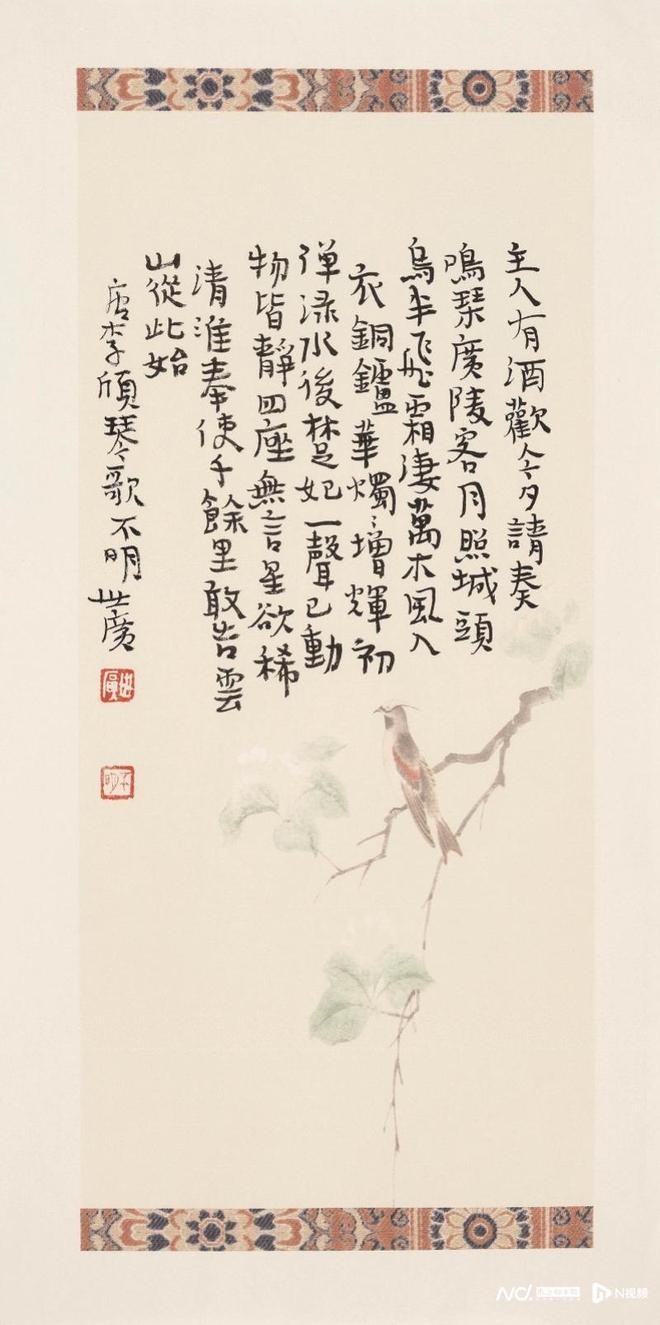 主人有酒歡今夕請奏
鳴琴廣陵客月照城頭
烏半飛霜淒萬木風入
衣銅鑪華燭燭增輝初
弹渌水後楚妃一聲已動
物皆靜四座無言星欲稀
清淮奉使千餘里敢告雲
山從此始
唐李頎琴歌不明世廣
N视频